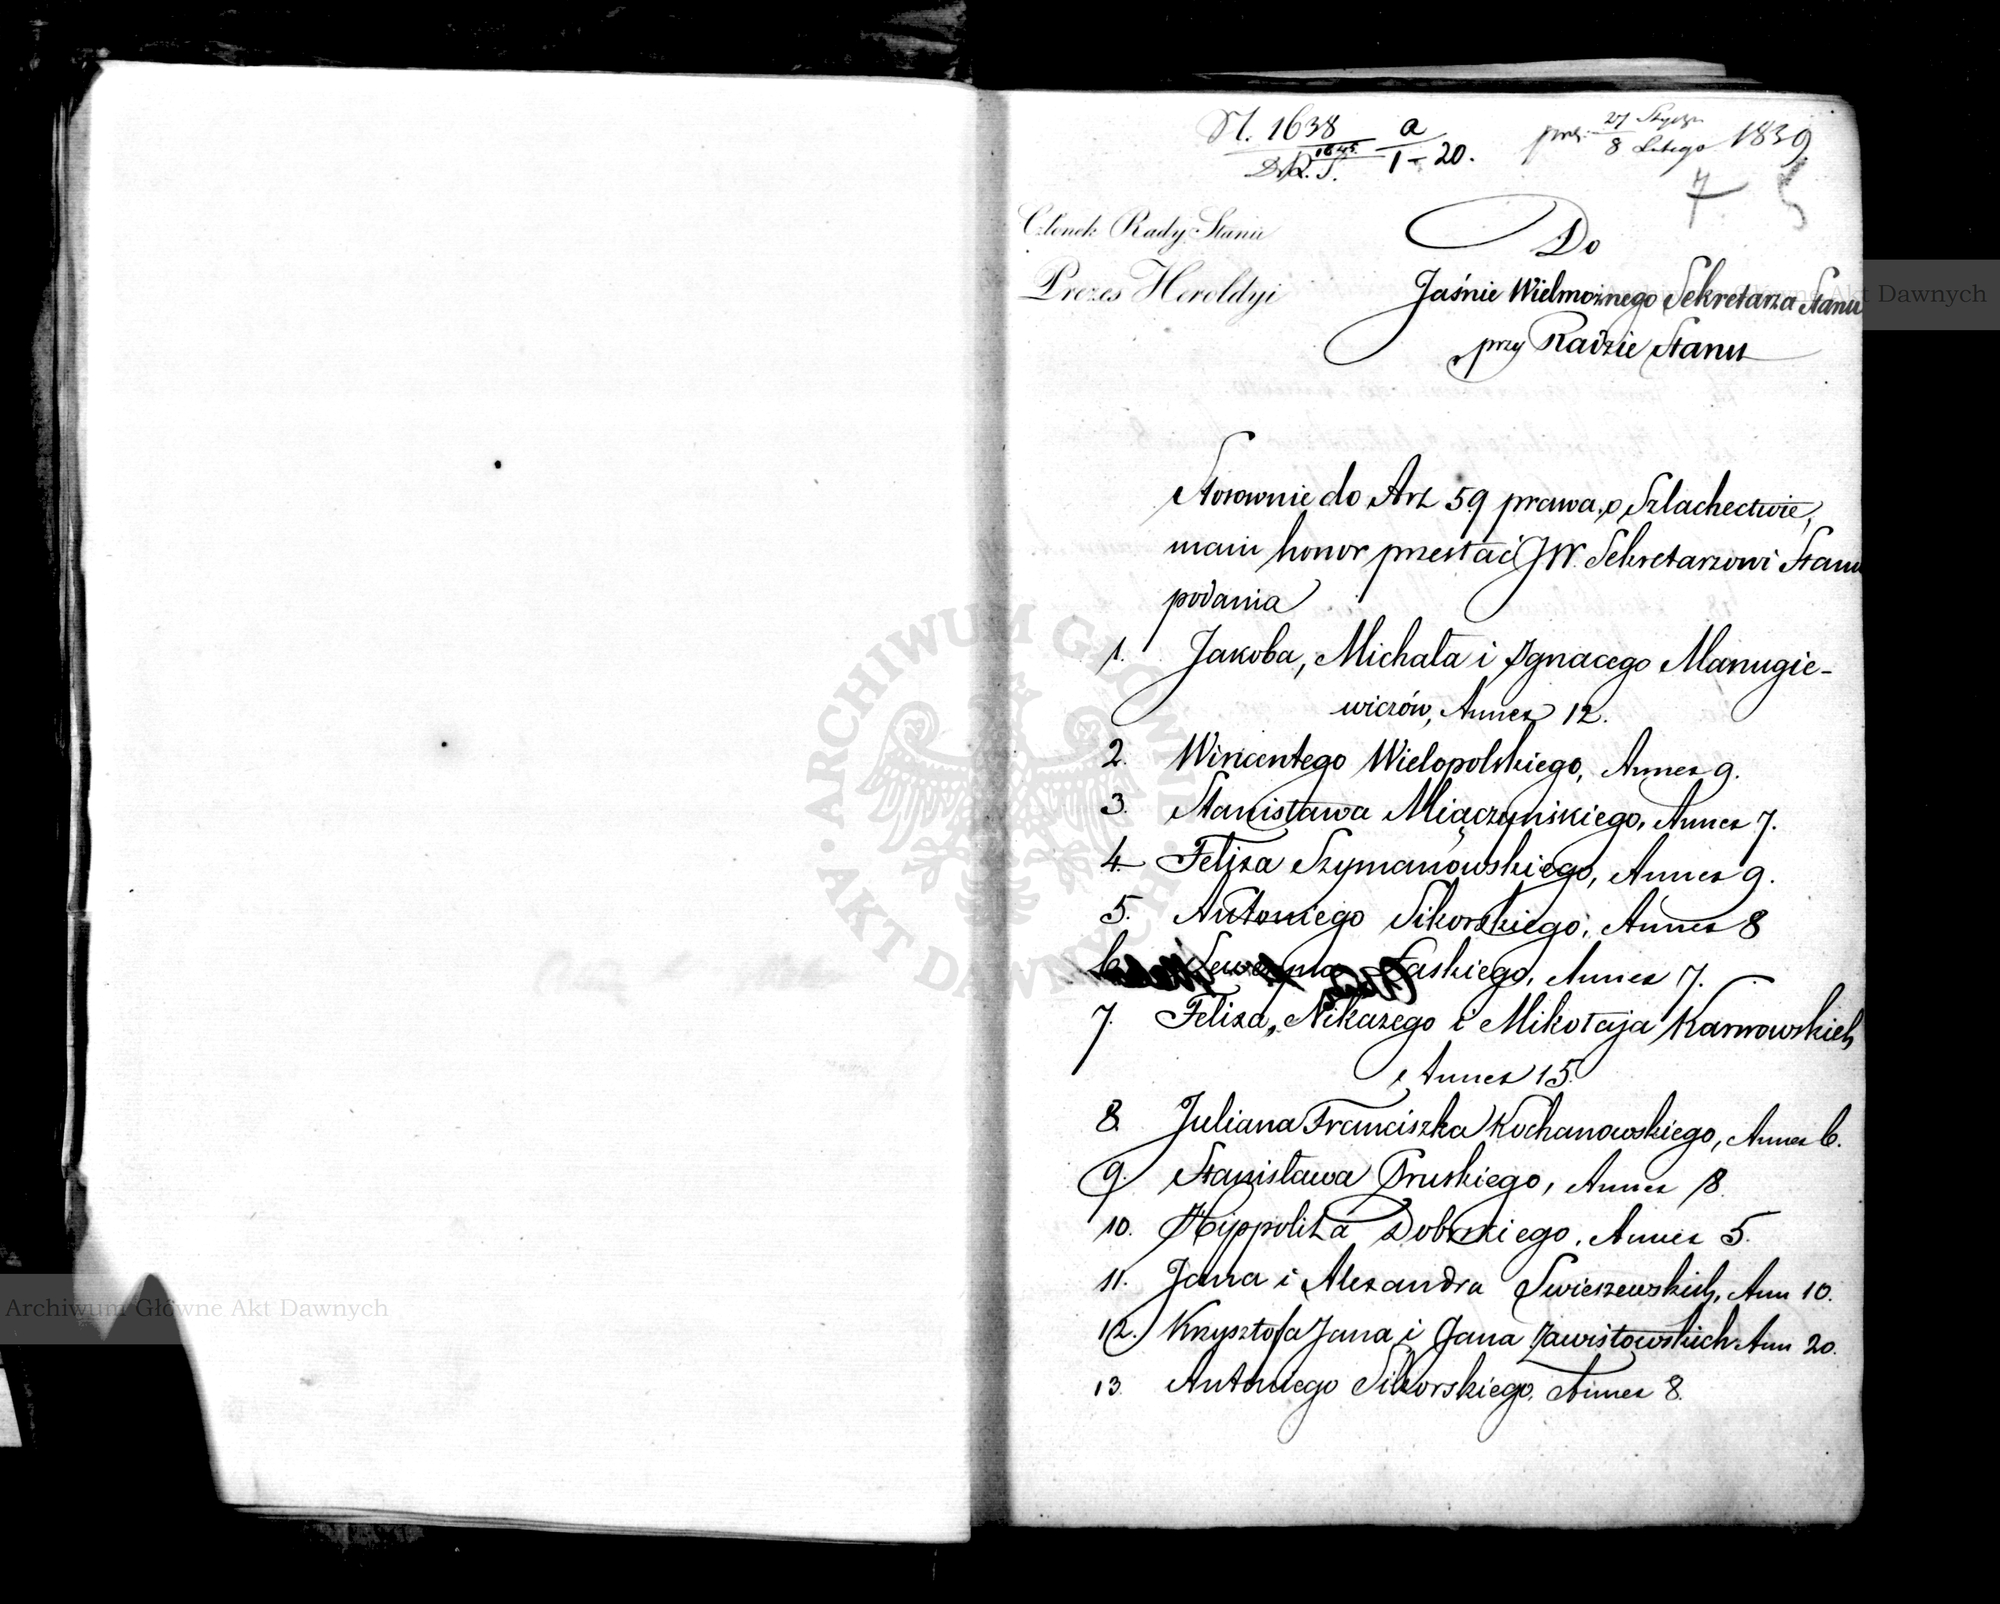 N. 1638 a prez. 27 Stycz. 1839
D.R.S. 1845. 1-20. 8 Lutego
7
Członek Rady Stanu
Prezes Heroldyi
Do
Jaśnie Wielmożnego Sekretarza Stanu
przy Radzie Stanu
Stosownie do Art 59 prawa o Szlachectwie,
mam honor przesłać JW. Sekretarzowi Stanu
podania
1. Jakoba, Michała i Ignacego Manugie-
wiczów, Annex 12.
2. Wincentego Wielopolskiego, Annex 9.
3. Stanisława Miączyńskiego, Annex 7.
4. Felixa Szymanowskiego, Annex 9.
5. Antoniego Sikorskiego, Annex 8
6. Seweryna Łaskiego, Annex 7.
7. Felixa, Nikazego i Mikołaja Karwowskich
Annex 15.
8. Juliana Franciszka Kochanowskiego, Annex 6.
9. Stanisława Pruskiego, Annex 8.
10. Hippolita Dobrskiego, Annex 5.
11. Jana i Alexandra Swieszewskich, Ann 10.
12. Krzysztofa Jana i Jana Zawistowskich Ann 20.
13. Antoniego Sikorskiego, Annex 8.
ARCHIWUM GŁÓWNE AKT DAWNYCH
Archiwum Główne Akt Dawnych
Akt Dawnych